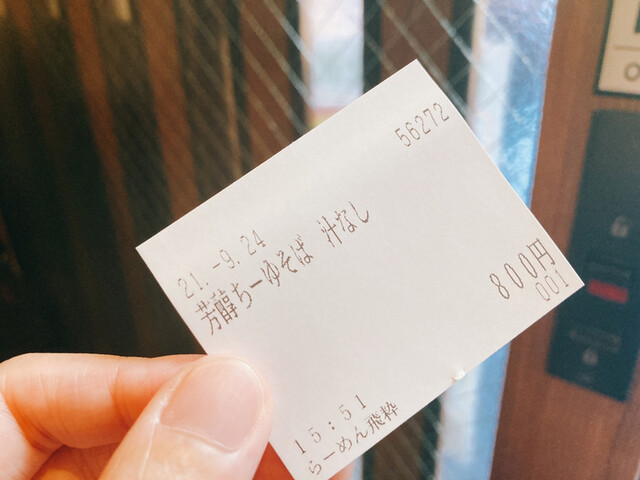 56272
21.-9.24
芳醇ちーゆそば 汁なし
800円
001
15:51
らーめん飛粋